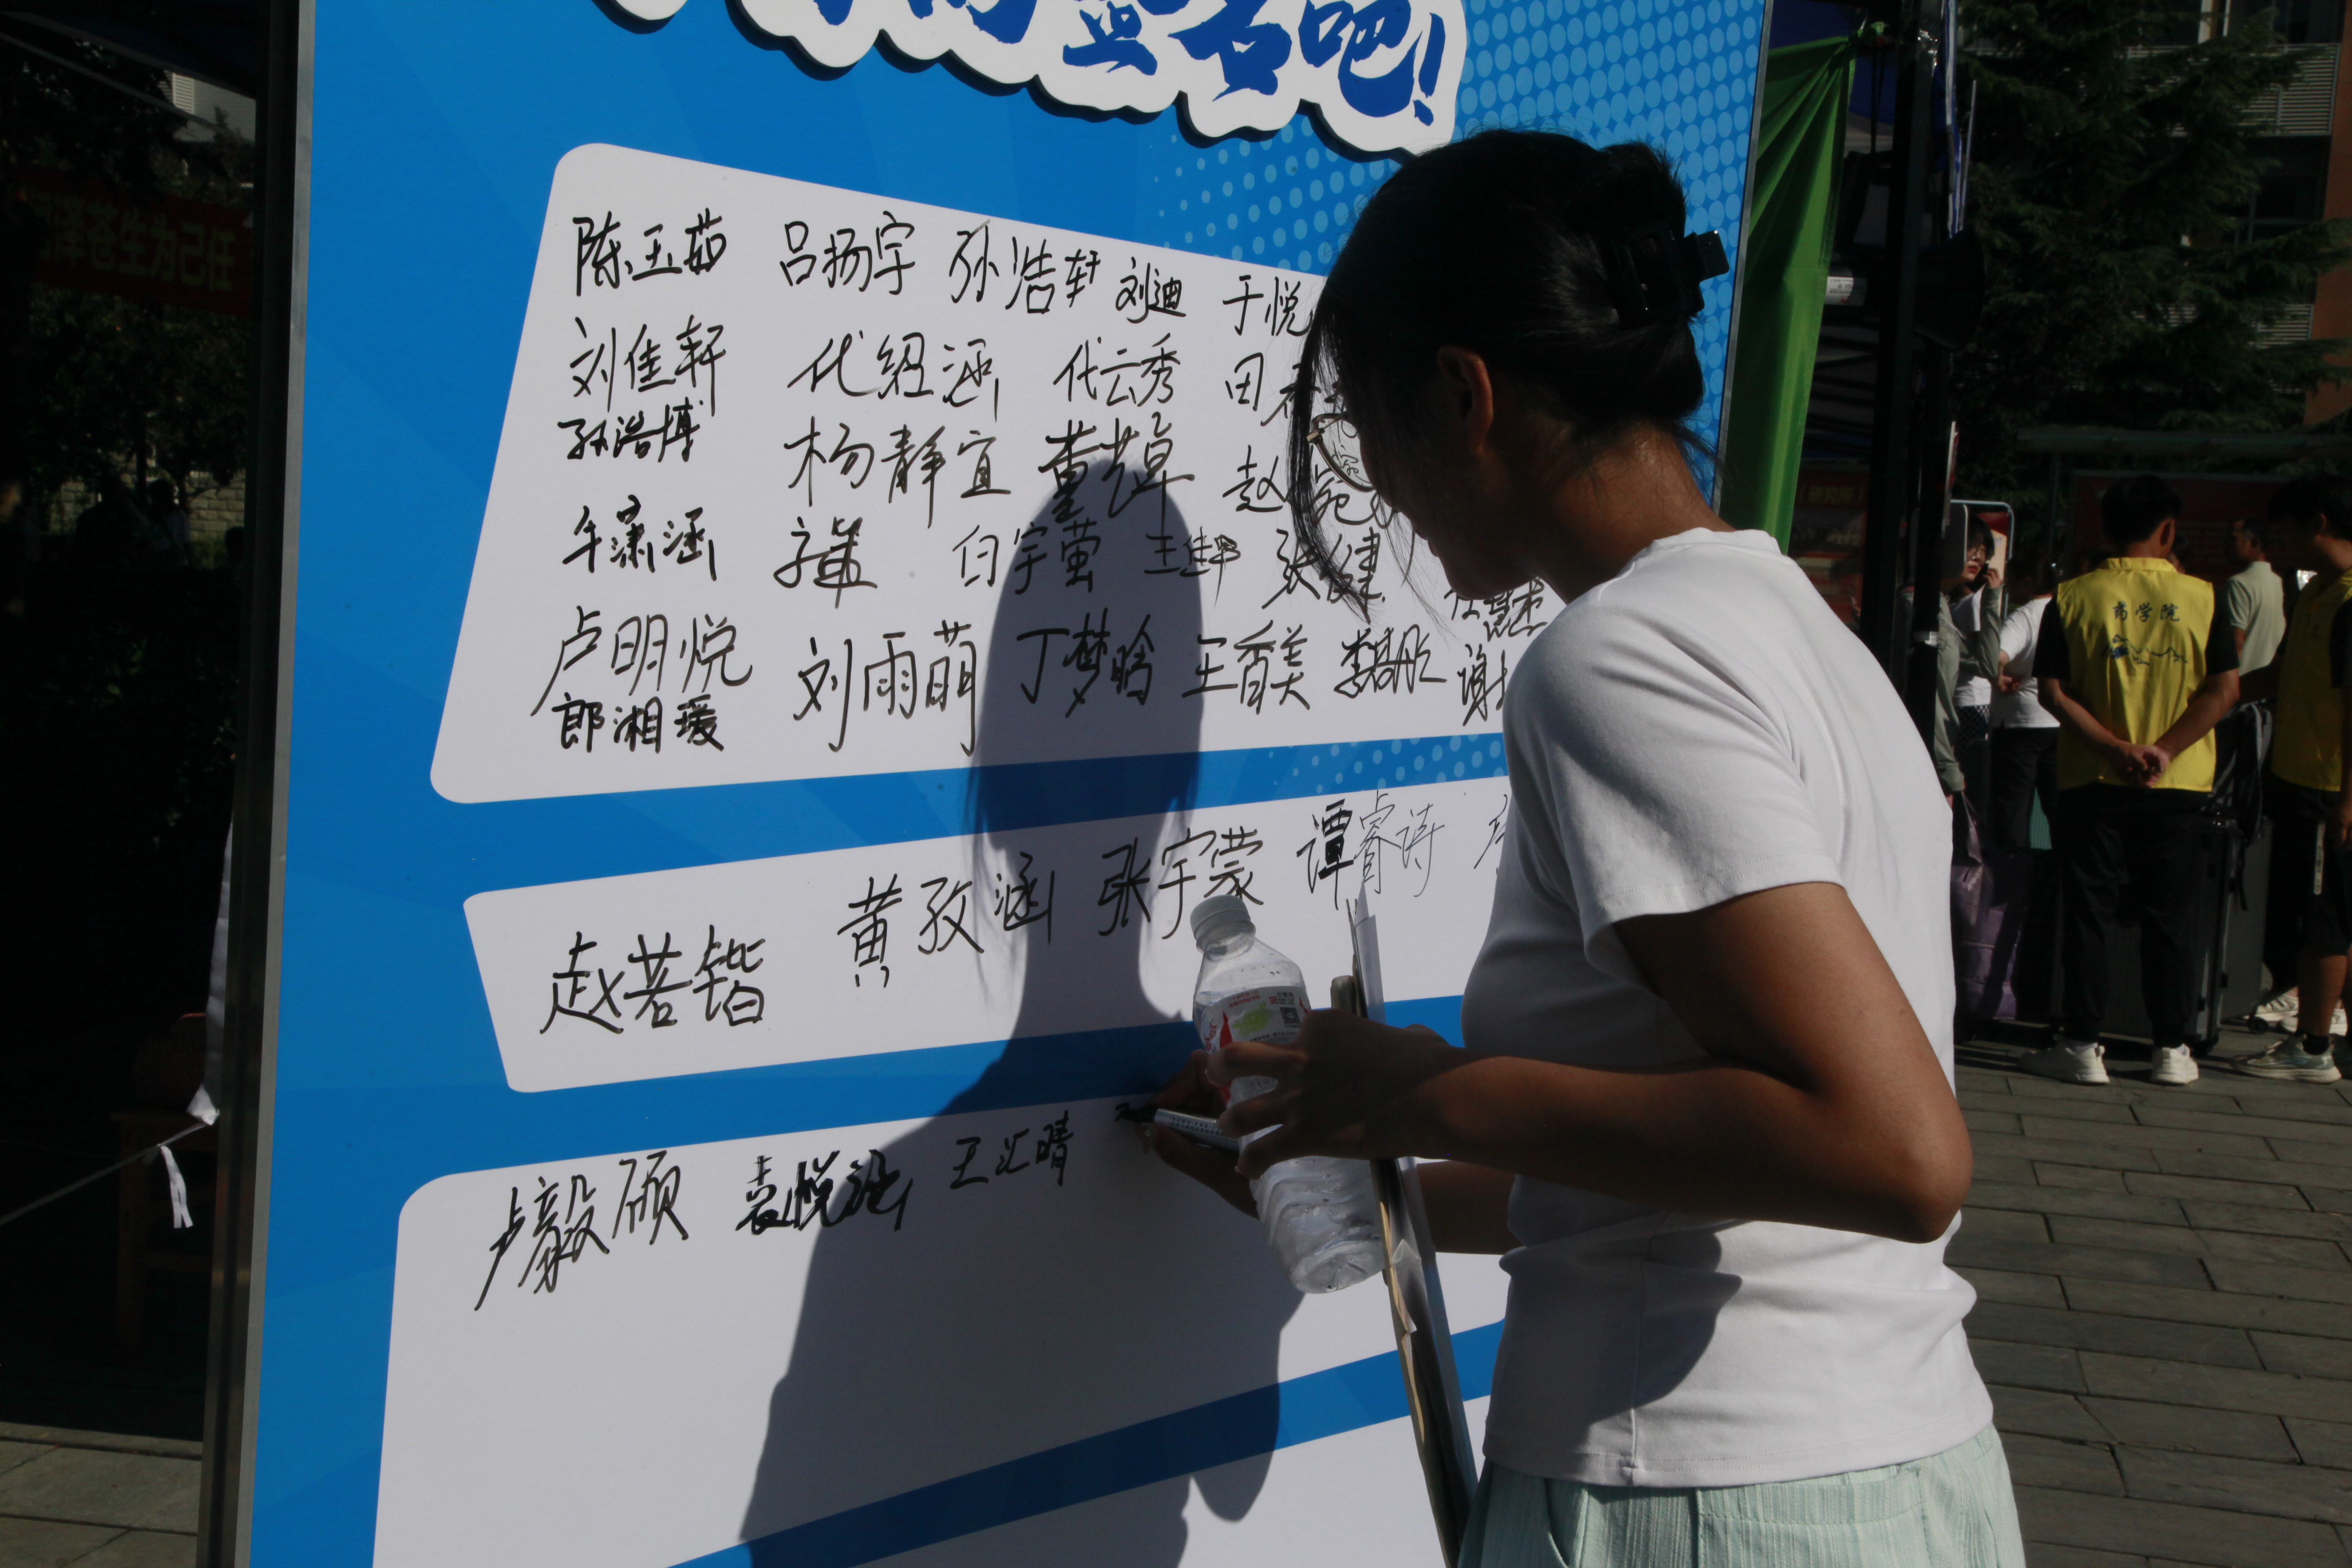 签名吧!
泽苍生为己任
陈玉茹 吕扬宇 孙浩轩 刘迪 于悦
刘佳轩 代绍涵 代云秀 田
孙浩博 杨静宜 董焯 赵
牟潇涵 白宇萤 张健
卢明悦 刘雨萌 丁梦晗 王香美 谢
郎湘瑗
商学院
黄孜涵 张宇蒙 谭睿诗
赵若锴
卢毅颀 袁悦涵 王汇晴